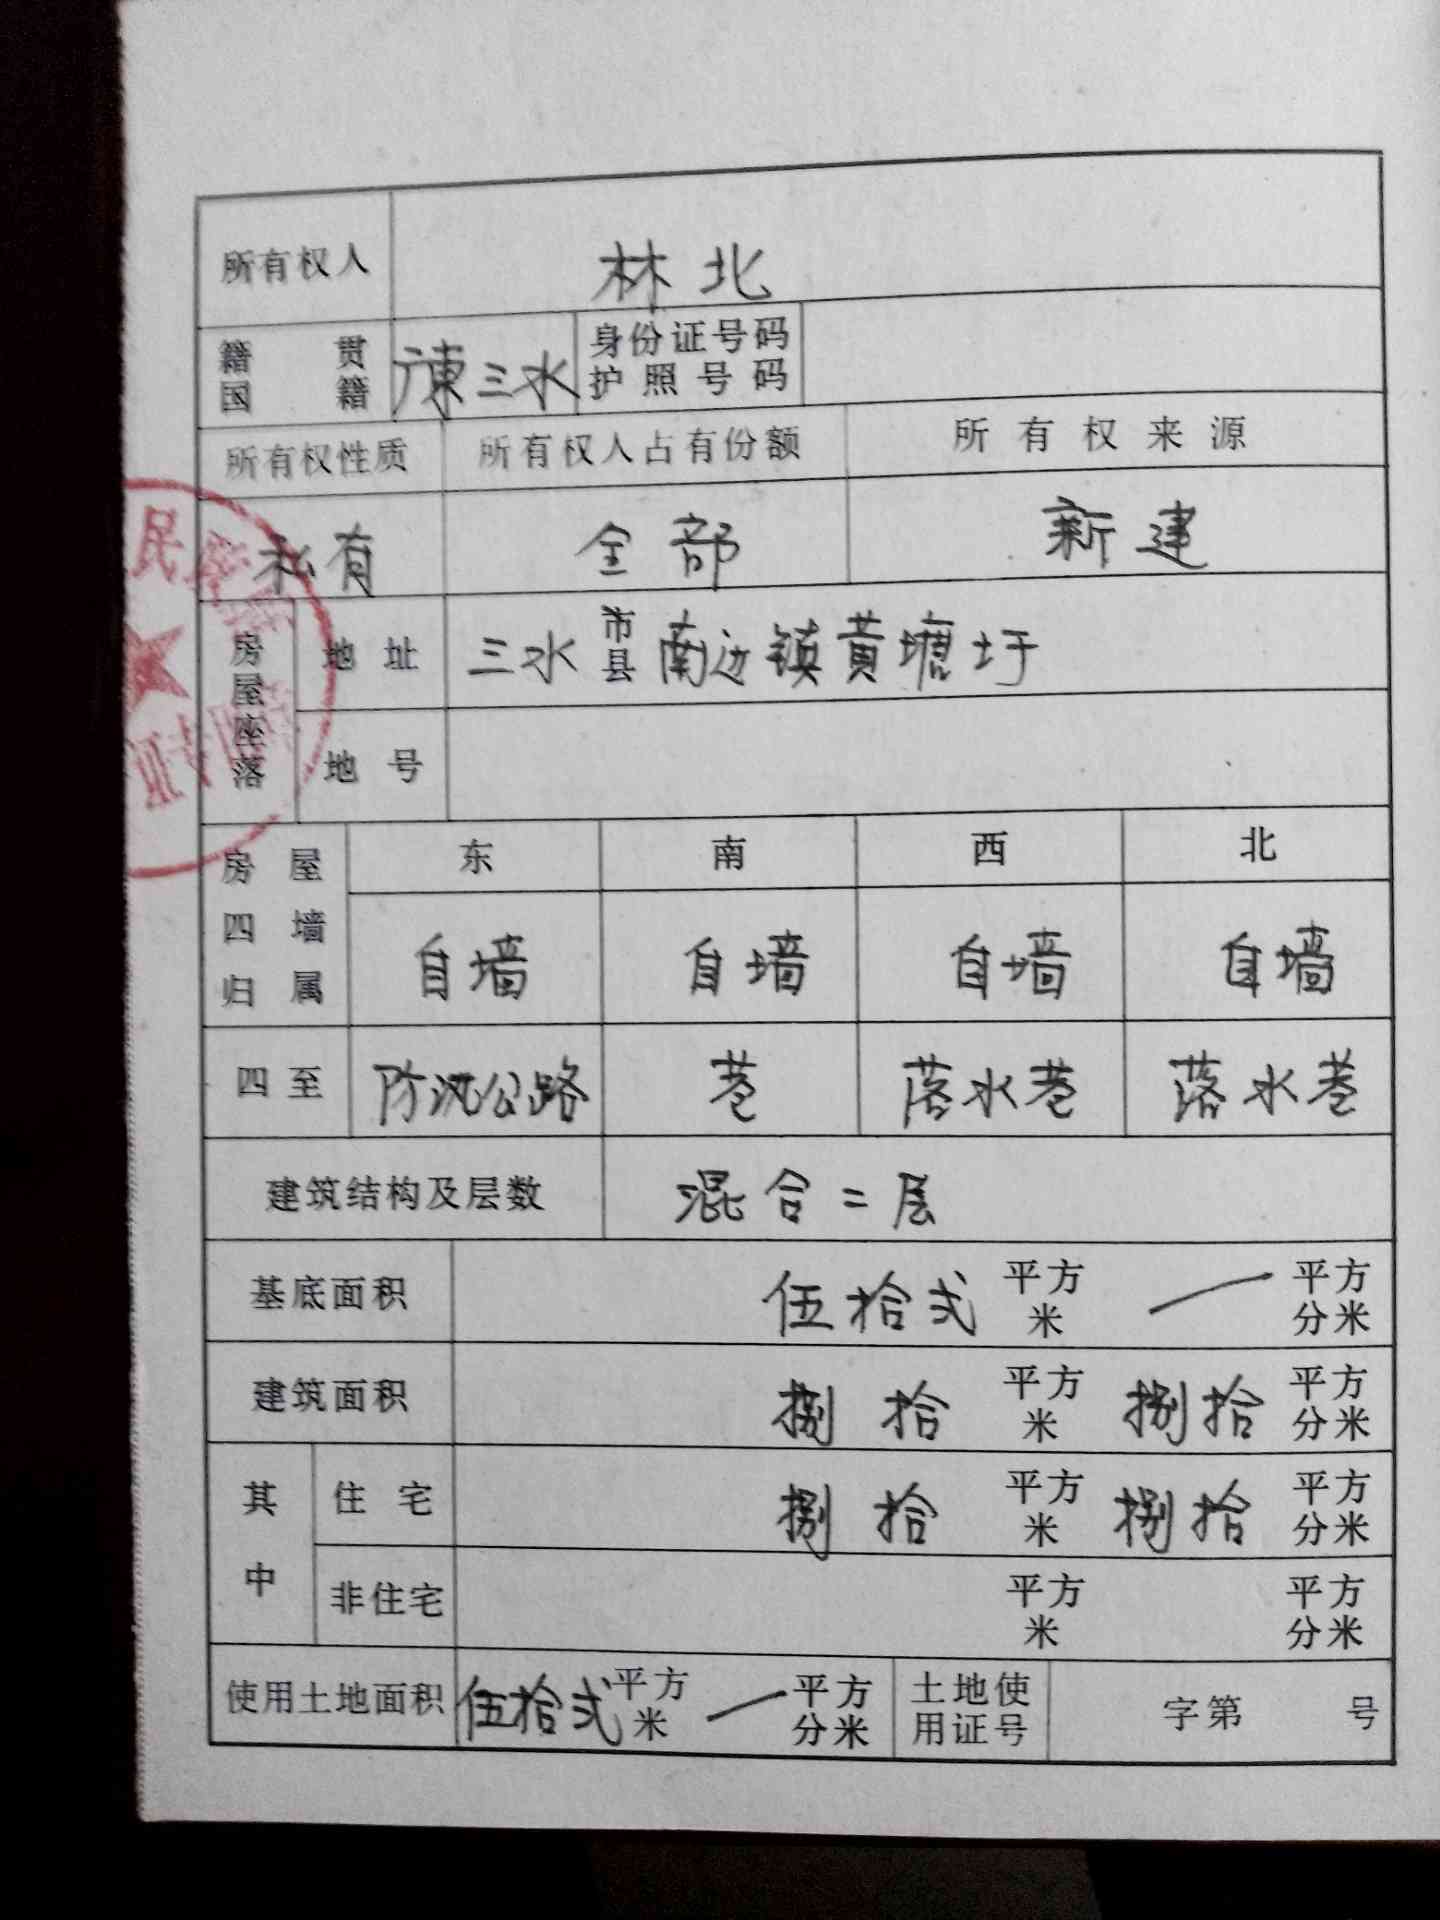 所有权人 林北
籍贯 广东三水 身份证号码
国籍 护照号码
所有权性质 所有权人占有份额 所有权来源
私有 全部 新建
房屋座落 地址 三水 市县 南边镇黄塘圩
地号
房屋四墙归属 东 南 西 北
自墙 自墙 自墙 自墙
四至 防汛公路 巷 落水巷 落水巷
建筑结构及层数 混合二层
基底面积 伍拾弍 平方米 一 平方分米
建筑面积 捌拾 平方米 捌拾 平方分米
其中 住宅 捌拾 平方米 捌拾 平方分米
非住宅 平方米 平方分米
使用土地面积 伍拾弍 平方米 一 平方分米 土地使用证号 字第 号
民
证专用